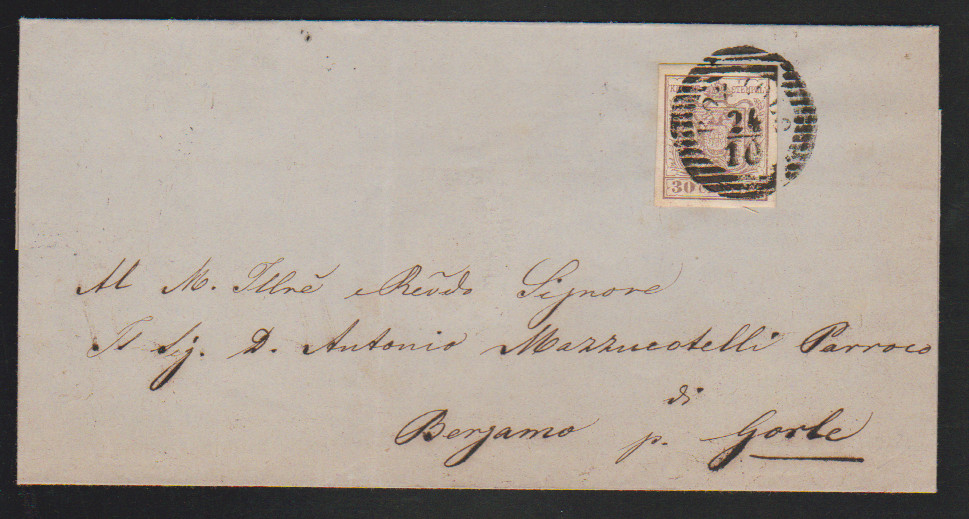 STEMPEL
24
10
30
Al M. Illrẽ e Revd̃o Signore
Il Sig. D. Antonio Mazzucotelli Parroco
di
Bergamo p. Gorle